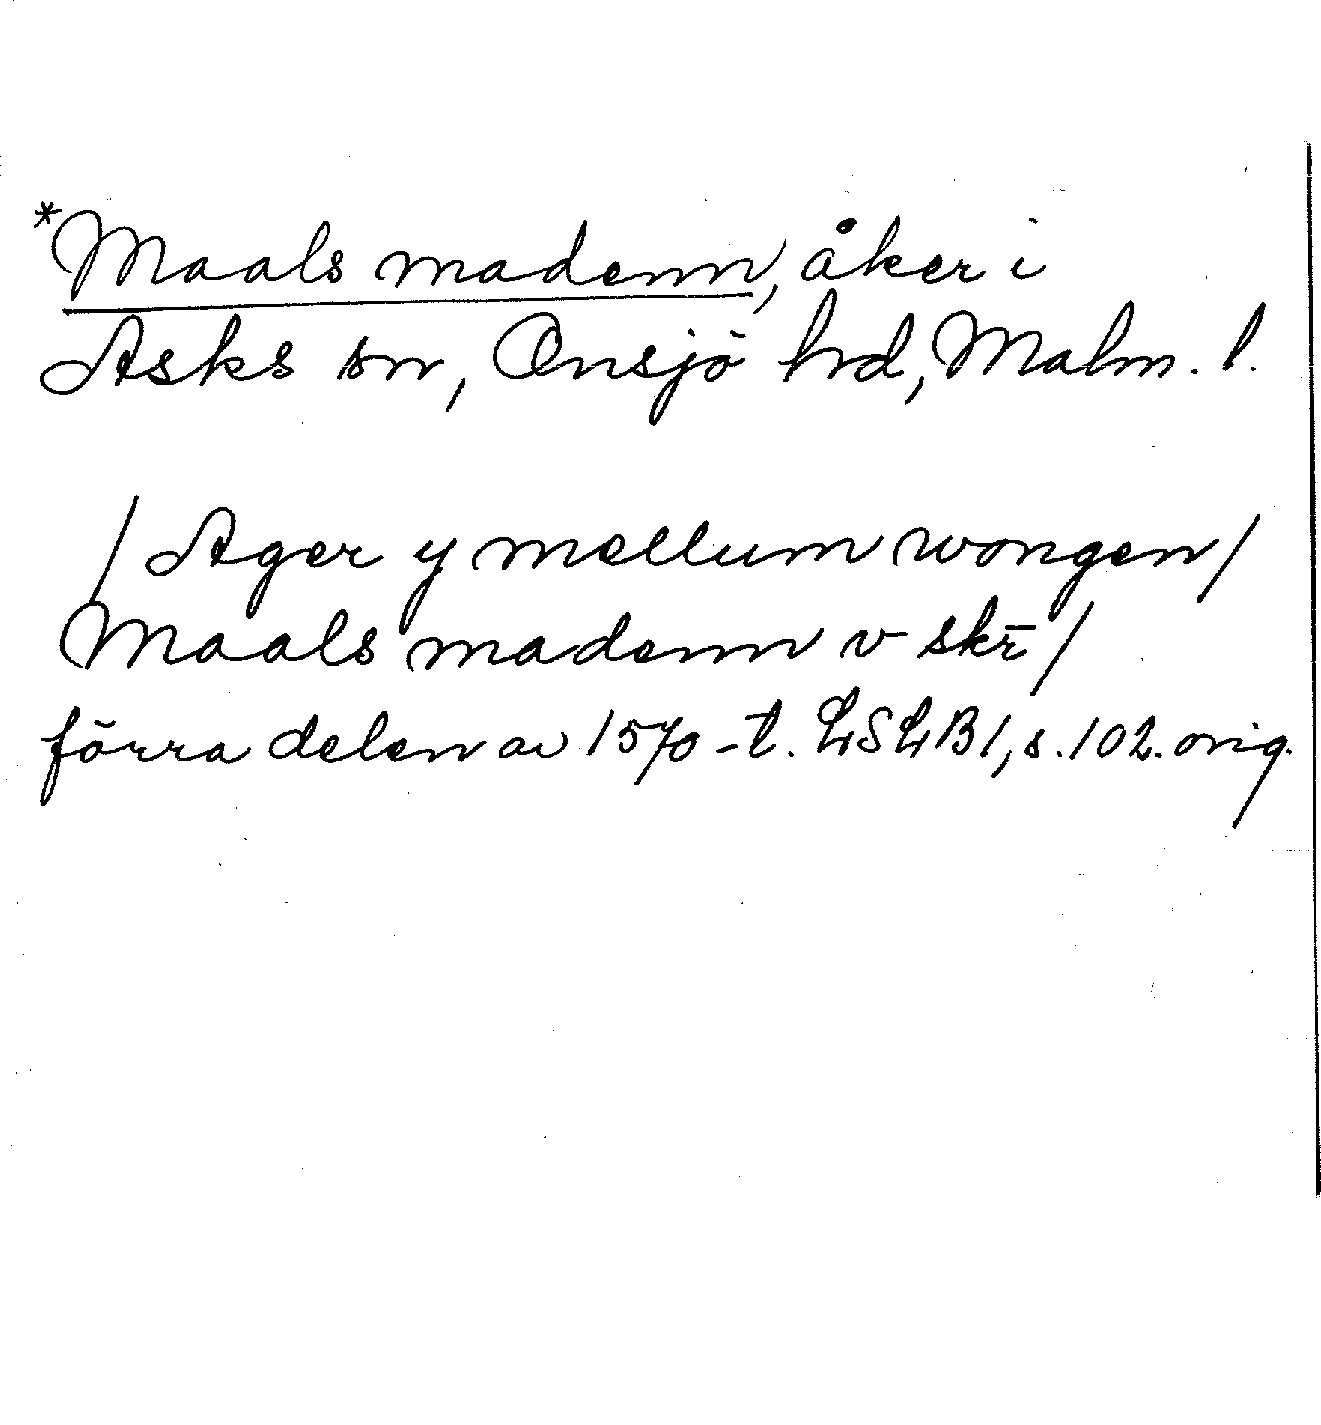 *Maals madenn, åker i
Asks sn, Onsjö hd, Malm. l.
/Ager y mellum wongen/
Maals madenn v skr̄/
förra delen av 1570-t. LSLB1, s. 102. orig.